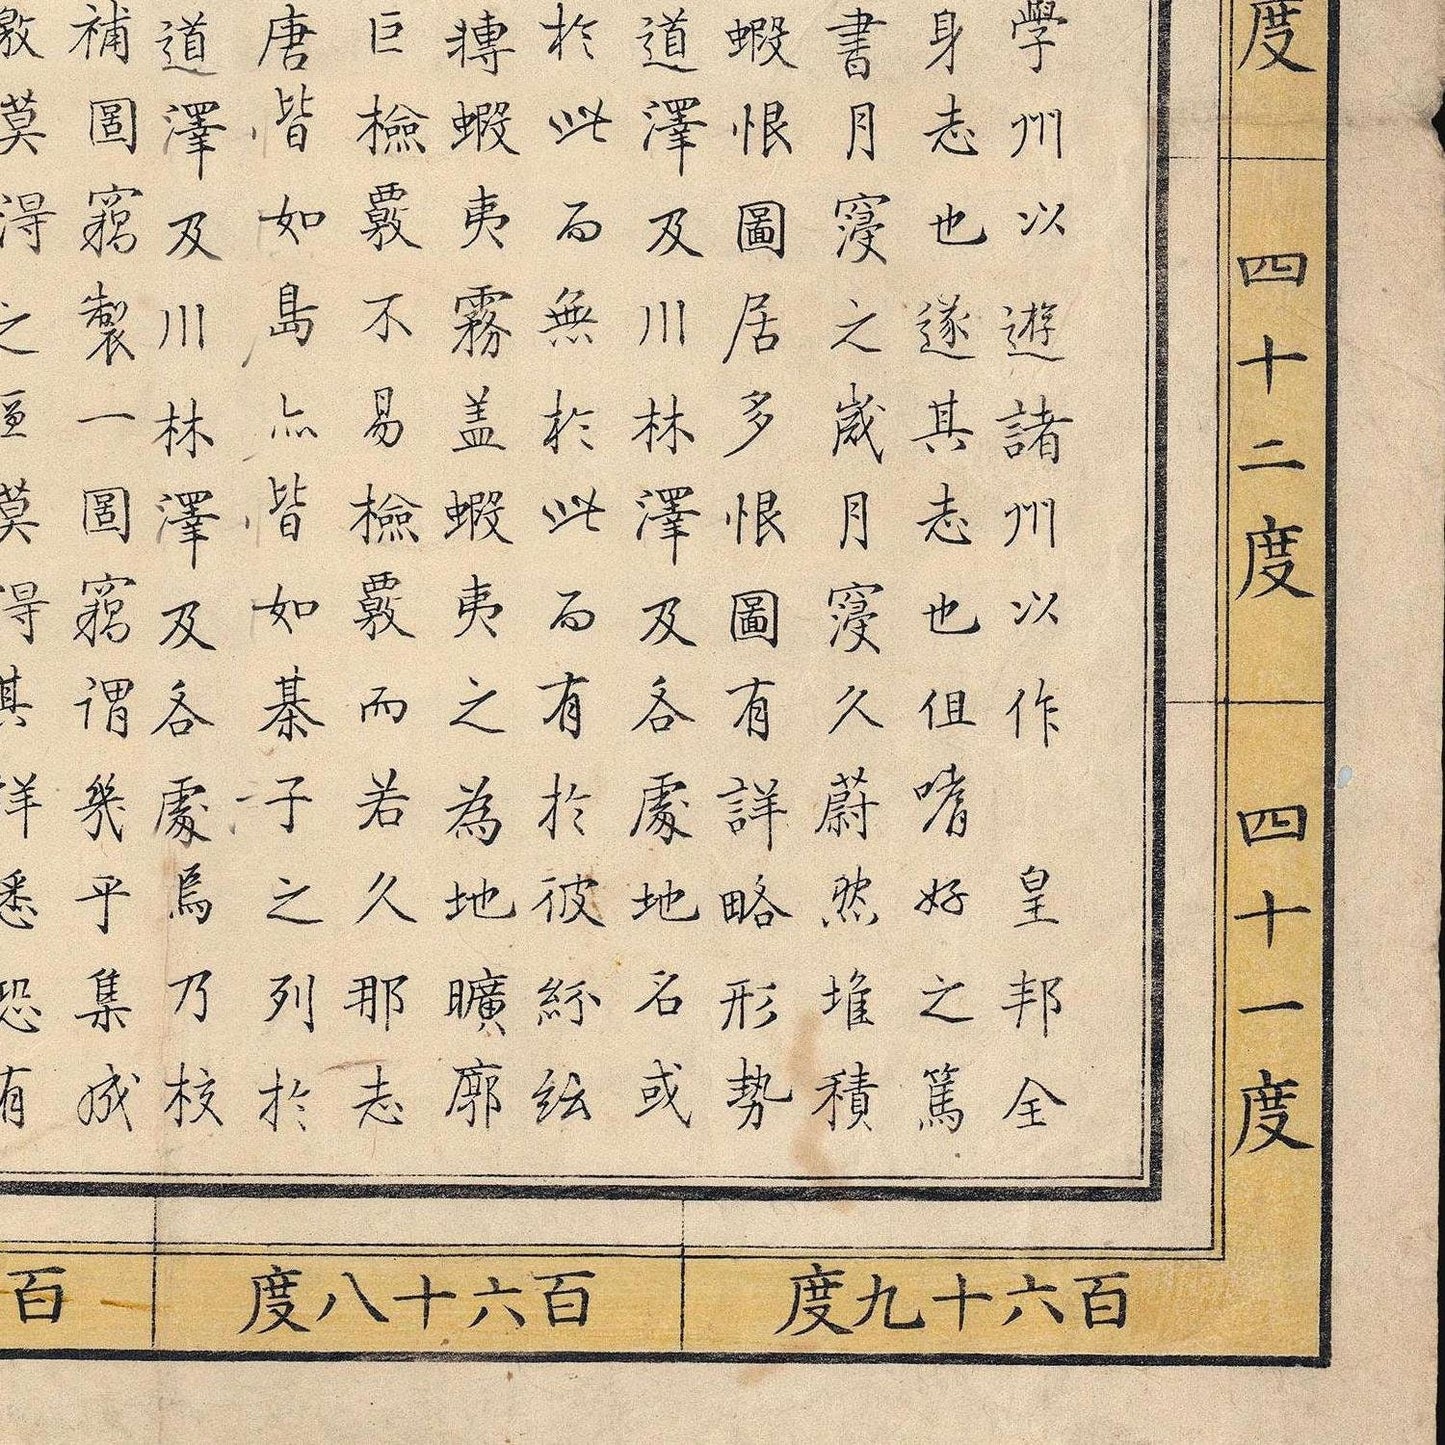 學州以遊諸州以作　皇邦全
身志也遂其志也但嗜好之篤
書月寖之歲月寖久蔚然堆積
蝦恨圖居多恨圖有詳略形勢
道澤及川林澤及各處地名或
於此而無於此而有於彼紛紜
蝦夷霧盖蝦夷之為地曠廓
巨檢覈不易檢覈而若久那志
唐皆如島亦皆如棊子之列於
道澤及川林澤及各處焉乃校
補圖竊製一圖竊謂幾乎集成
莫得之
莫得其詳悉恐有
度
四十二度
四十一度
百六十九度
百六十八度
百